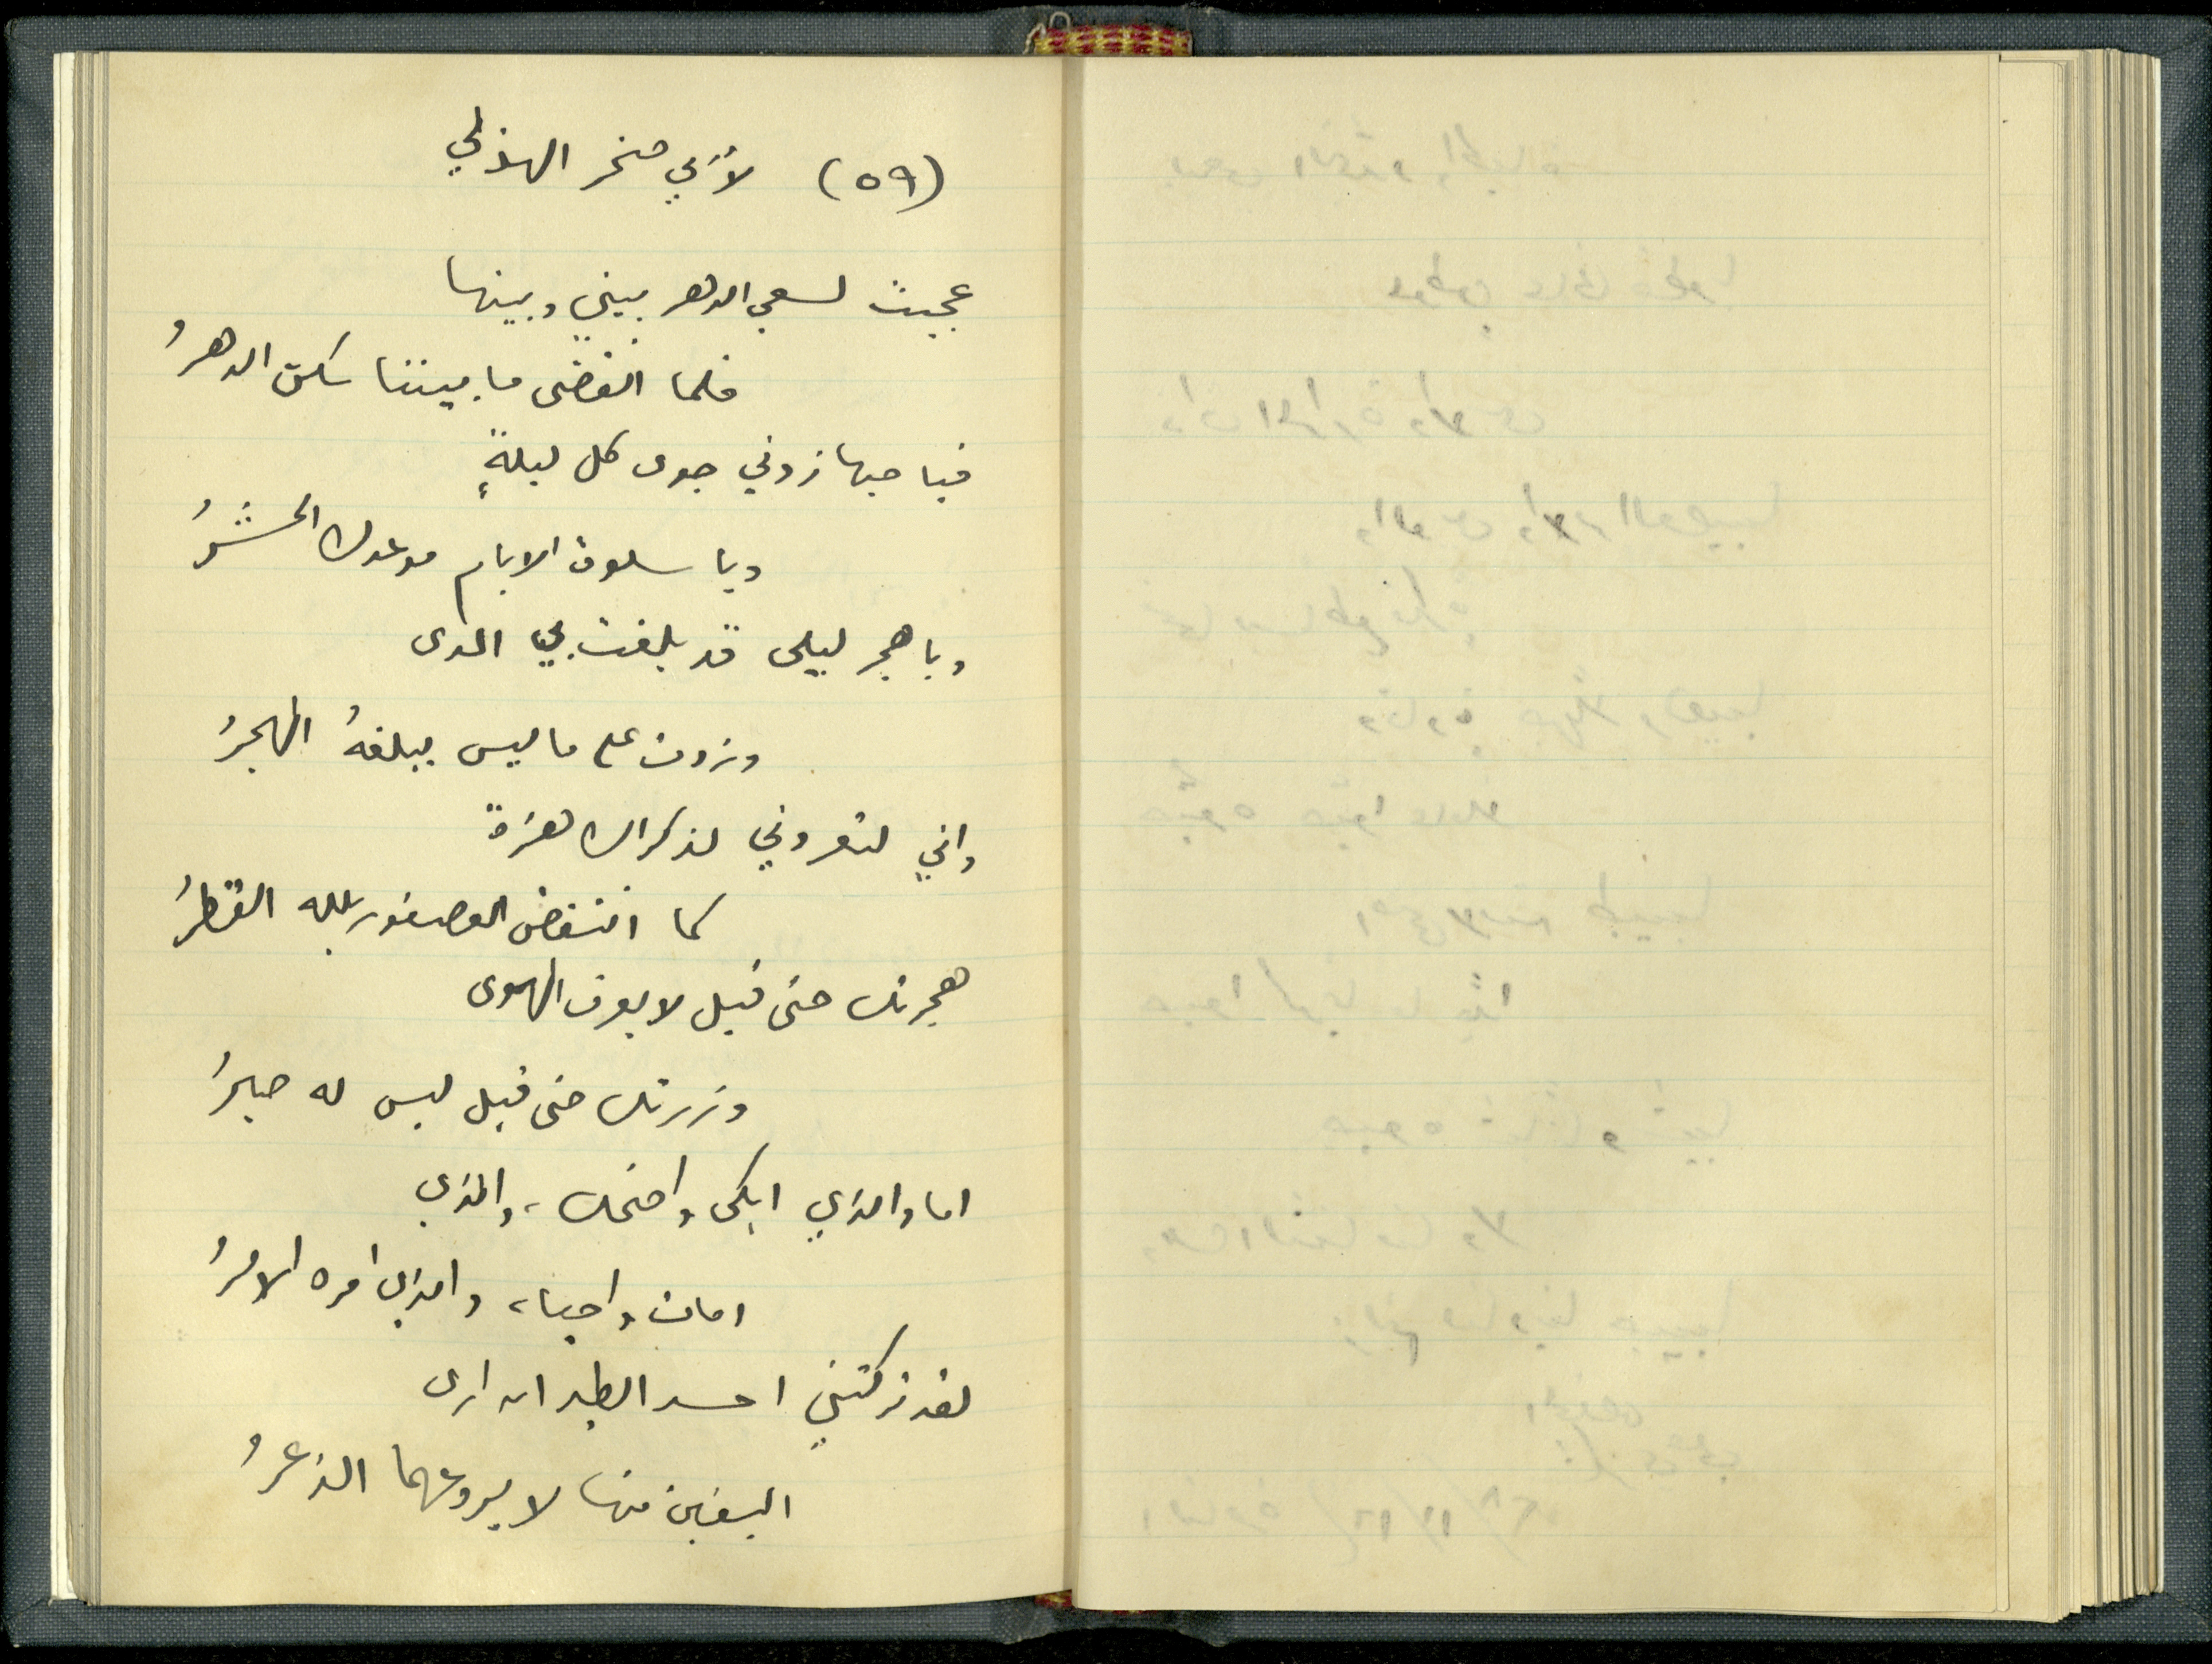 (٥٩) لأبي صخر الهذلي
عجبت لسعي الدهر بيني وبينها
فلما انقضى ما بيننا سكن الدهرُ
فيا حبها زدني جوى كل ليلةٍ
ويا سلوة الايام موعدك الحشرُ
ويا هجر ليلى قد بلغت بي المدى
وزدت على ما ليس يبلغهُ الهجرُ
واني لتعروني لذكراك هزة
كما انتفض العصفور بلله القطرُ
هجرتك حتى قيل لا يعرف الهوى
وزرتك حتى قيل ليس له صبرُ
اما والذي ابكى واضحك، والذي
امات واحيا، والذي امره الامرُ
لقد تركتني احسد الطير ان ارى
اليفين منها لا يروعهما الذعرُ